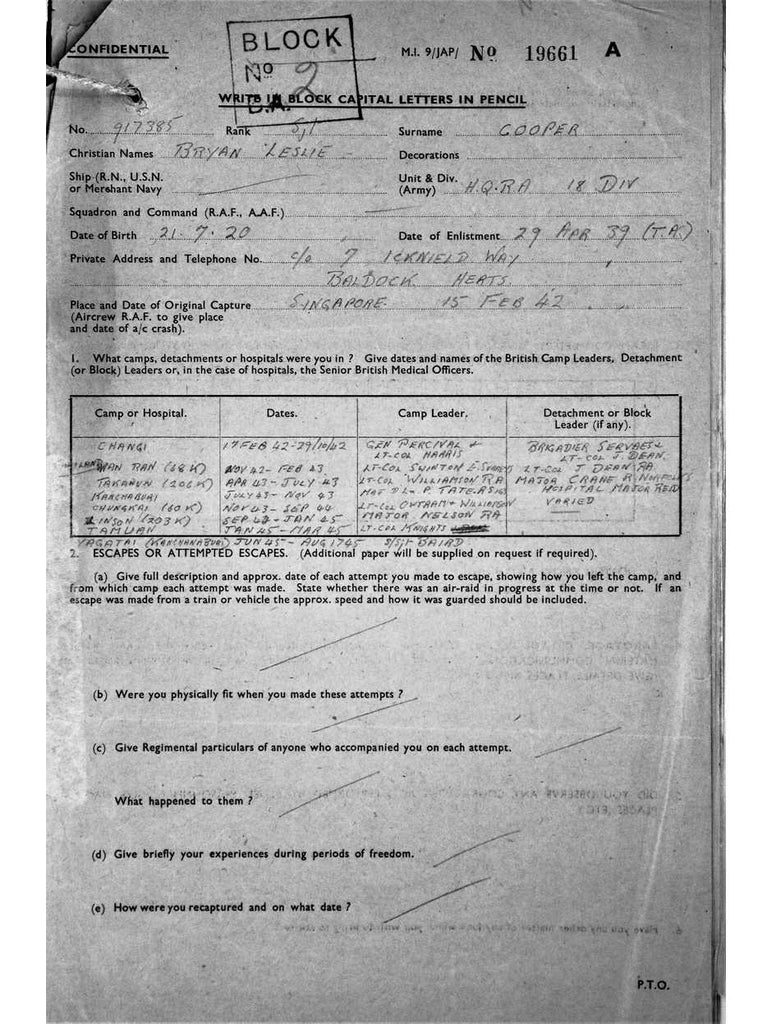 CONFIDENTIAL
BLOCK
No 2
M.I. 9/JAP/ No 19661 A
WRITE IN BLOCK CAPITAL LETTERS IN PENCIL
No. 917385 Rank Sjt Surname COOPER
Christian Names BRYAN LESLIE Decorations
Ship (R.N., U.S.N. or Merchant Navy
Unit & Div. (Army) H.Q.R.A 18 DIV
Squadron and Command (R.A.F., A.A.F.)
Date of Birth 21.7.20 Date of Enlistment 29 APR 39 (T.A.)
Private Address and Telephone No. c/o 7 ICKNIELD WAY
BALDOCK HERTS.
Place and Date of Original Capture SINGAPORE 15 FEB 42
(Aircrew R.A.F. to give place
and date of a/c crash).
1. What camps, detachments or hospitals were you in ? Give dates and names of the British Camp Leaders, Detachment
(or Block) Leaders or, in the case of hospitals, the Senior British Medical Officers.
Camp or Hospital. Dates. Camp Leader. Detachment or Block
Leader (if any).
CHANGI 17 FEB 42-29/10/42 GEN PERCIVAL & LT-COL HARRIS BRIGADIER SERVAES & LT-COL J. DEAN.
WAN RAN (68K) NOV 42- FEB 43 LT-COL SWINTON E. SURREYS LT-COL J DEAN RA
TAKANUN (206K) APR 43 - JULY 43 LT-COL WILLIAMSON RA MAJOR CRANE R NORFOLKS
KANCHABURI JULY 43 - NOV 43 HOSPITAL MAJOR REED
CHUNGKAI (60K) NOV 43 - SEP 44 LT-COL OUTRAM & WILLIAMSON VARIED
LINSON (203K) SEP 44 - JAN 45 MAJOR NELSON RA
TAMUAN JAN 45 - MAR 45 LT-COL KNIGHTS
(KANCHANABURI) JUN 45 - AUG 1745 S/Sjt BAIRD
2. ESCAPES OR ATTEMPTED ESCAPES. (Additional paper will be supplied on request if required).
(a) Give full description and approx. date of each attempt you made to escape, showing how you left the camp, and
from which camp each attempt was made. State whether there was an air-raid in progress at the time or not. If an
escape was made from a train or vehicle the approx. speed and how it was guarded should be included.
(b) Were you physically fit when you made these attempts ?
(c) Give Regimental particulars of anyone who accompanied you on each attempt.
What happened to them ?
(d) Give briefly your experiences during periods of freedom.
(e) How were you recaptured and on what date ?
P.T.O.